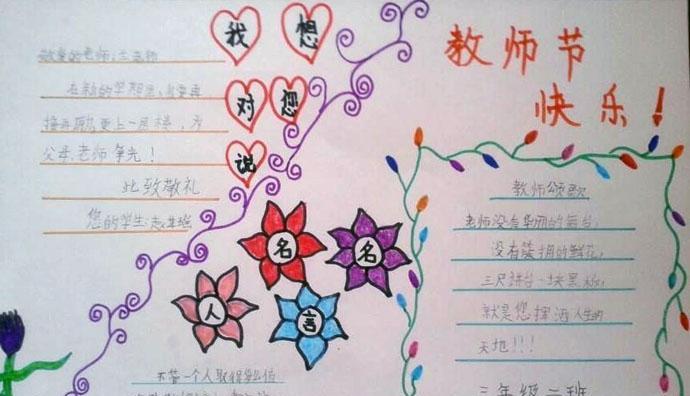 我想
对您
说
敬爱的老师:
在新的学期里,我要再
接再励,更上一层楼,为
父母、老师争光!
此致敬礼
您的学生:赵
教师节
快乐!
名名
人言
不管一个人取得
教师颂歌
老师没有华丽的舞台,
没有簇拥的鲜花,
三尺讲台一块黑板,
就是您挥洒人生的
天地!!!
三年级二班